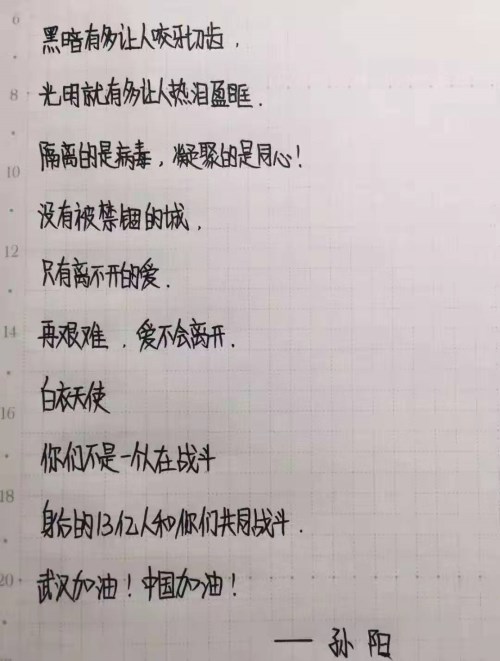 6
黑暗有多让人咬牙切齿,
8 光明就有多让人热泪盈眶.
隔离的是病毒,凝聚的是同心!
10
没有被禁锢的城,
12
只有离不开的爱.
14 再艰难,爱不会离开.
白衣天使
16
你们不是一个人在战斗
18
身后的13亿人和你们共同战斗.
20 武汉加油!中国加油!
——孙阳